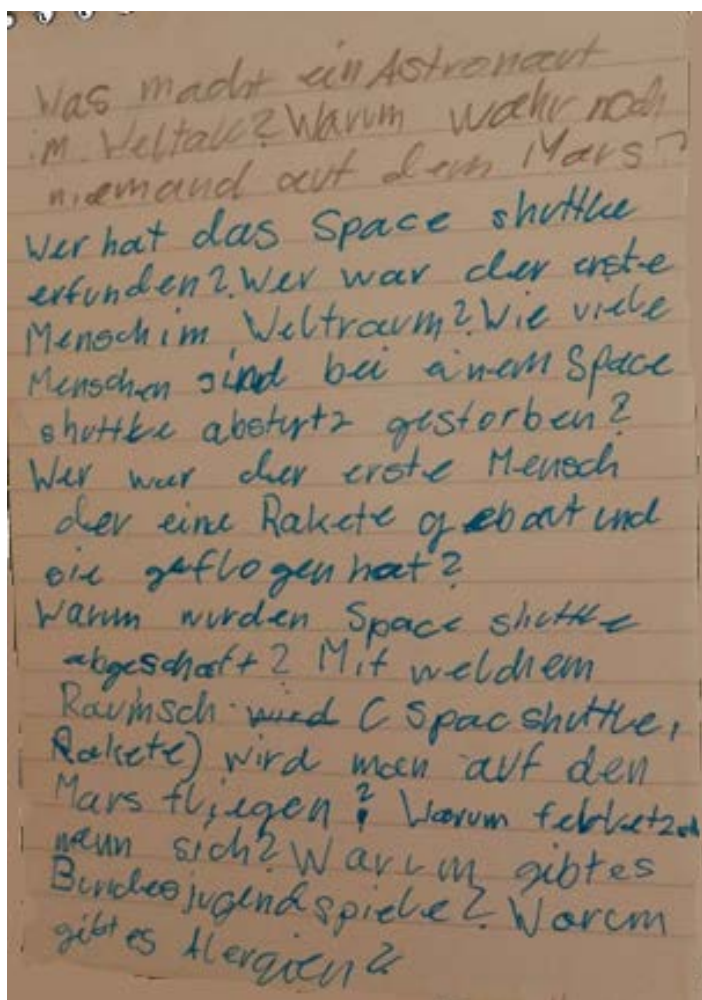 Was macht ein Astronaut
im Weltall? Warum wahr noch
niemand auf dem Mars?
Wer hat das Space shuttle
erfunden? Wer war der erste
Mensch im Weltraum? Wie viele
Menschen sind bei einem Space
shuttle abstyrtz gestorben?
Wer war der erste Mensch
der eine Rakete gebaut und
sie geflogen hat?
Warum wurden Space shuttle
abgeschaft? Mit welchem
Raumsch (Spacshuttle,
Rakete) wird man auf den
Mars fliegen? Warum
mann sich? Warum gibt es
Bundesjugendspiele? Warum
gibt es Alergien?